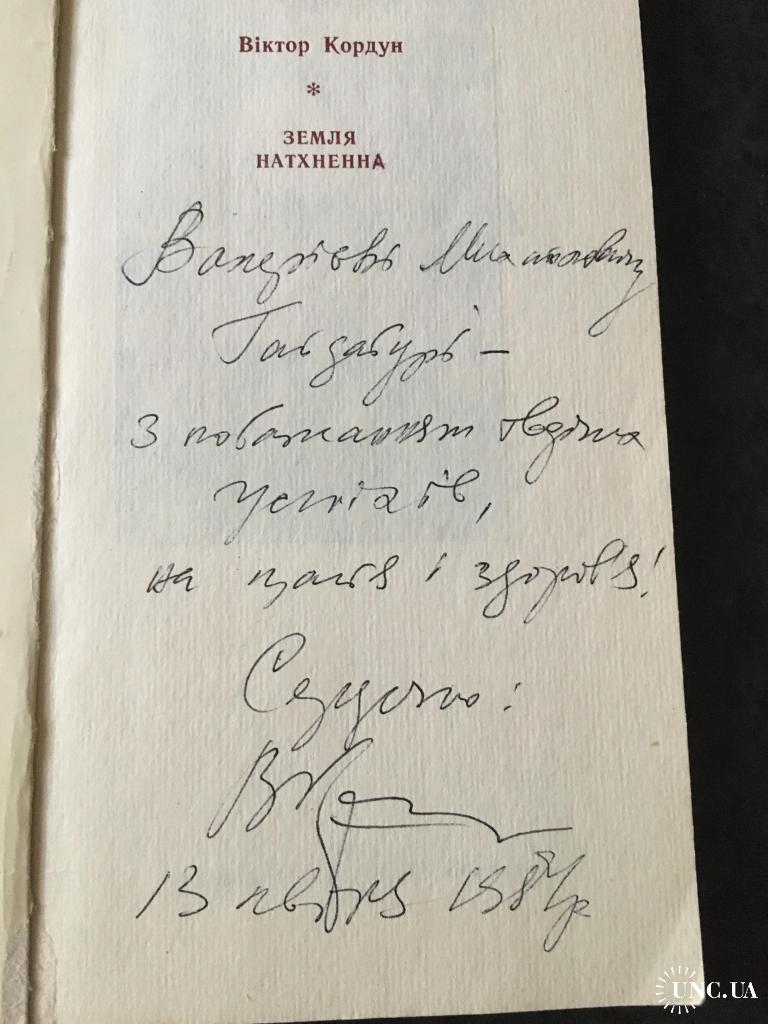 Віктор Кордун
*
ЗЕМЛЯ
НАТХНЕННА
Валерієві Михайловичу
Гайдабурі —
з побажанням творчих
успіхів,
на щастя і здоров'я!
Сердечно:
13 квітня 1984 р
UNC.UA